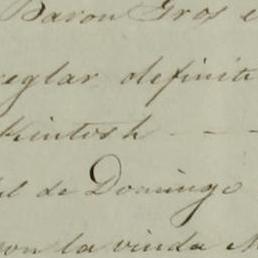 Baron Gros e
reglar definiti
Kintosh - -
el de Domingo
con la viuda M